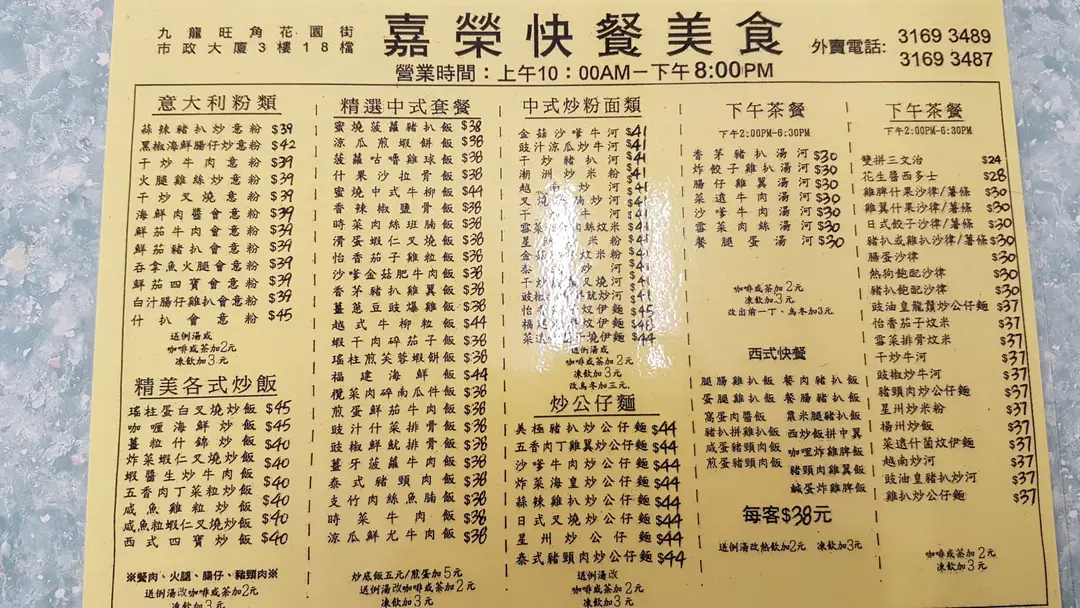 九龍旺角花園街
市政大廈3樓18檔
嘉榮快餐美食
外賣電話: 3169 3489
3169 3487
營業時間：上午10：00AM－下午8:00PM
意大利粉類
蒜辣豬扒炒意粉 $39
黑椒海鮮腸仔炒意粉 $42
干炒牛肉意粉 $39
火腿雞絲炒意粉 $39
干炒叉燒意粉 $39
海鮮肉醬會意粉 $39
鮮茄牛肉會意粉 $39
鮮茄豬扒會意粉 $39
吞拿魚火腿會意粉 $39
鮮茄四寶會意粉 $39
白汁腸仔雞扒會意粉 $39
什扒會意粉 $45
送例湯或
咖啡或茶加2元
凍飲加3元
精美各式炒飯
瑤柱蛋白叉燒炒飯 $45
咖喱海鮮炒飯 $45
薑粒什錦炒飯 $40
炸菜蝦仁叉燒炒飯 $40
蝦醬生炒牛肉飯 $40
五香肉丁菜粒炒飯 $40
咸魚雞粒炒飯 $40
咸魚粒蝦仁叉燒炒飯 $40
西式四寶炒飯 $40
※餐肉、火腿、腸仔、豬頸肉※
送例湯改咖啡或茶加2元
凍飲加3元
精選中式套餐
蜜燒菠蘿豬扒飯 $38
涼瓜煎蝦餅飯 $38
菠蘿咕嚕雞球飯 $38
什果沙拉骨飯 $38
蜜燒中式牛柳飯 $44
香辣椒鹽骨飯 $38
時菜肉絲班腩飯 $38
滑蛋蝦仁叉燒飯 $38
怡香茄子雞粒飯 $38
沙嗲金菇肥牛肉飯 $38
香茅豬扒雞翼飯 $38
薑蔥豆豉爆雞飯 $38
越式牛柳粒飯 $44
蝦干肉碎茄子飯 $38
瑤柱煎芙蓉蝦餅飯 $38
福建海鮮飯 $44
欖菜肉碎南瓜件飯 $38
煎蛋鮮茄牛肉飯 $38
豉汁什菜排骨飯 $38
豉椒鮮魷排骨飯 $38
薑牙菠蘿牛肉飯 $38
泰式豬頸肉飯 $38
支竹肉絲魚腩飯 $38
時菜牛肉飯 $38
涼瓜鮮尤牛肉飯 $38
炒底飯五元/煎蛋加5元
送例湯改咖啡或茶加2元
凍飲加3元
中式炒粉面類
金菇沙嗲牛河 $41
豉汁涼瓜炒牛河 $41
干炒豬扒河 $41
潮洲炒米粉 $41
越南炒河 $41
叉燒炒河 $41
干炒牛河 $41
雪菜肉絲炆米 $41
星米粉 $41
金炆米粉 $41
泰炒河 $41
干炒叉燒河 $41
豉椒魷炒河 $41
怡香炆伊麵 $45
福炆伊麵
菜燒伊麵 $41
送例湯或
咖啡或茶加2元
凍飲加3元
改烏冬加三元.
炒公仔麵
美極豬扒炒公仔麵 $44
五香肉丁雞翼炒公仔麵 $44
沙嗲牛肉炒公仔麵 $44
炸菜海皇炒公仔麵 $44
蒜辣雞扒炒公仔麵 $44
日式叉燒炒公仔麵 $44
星州炒公仔麵 $44
泰式豬頸肉炒公仔麵 $44
送例湯改
咖啡或茶加2元
凍飲加3元
下午茶餐
下午2:00PM-6:30PM
香茅豬扒湯河 $30
炸餃子雞扒湯河 $30
腸仔雞翼湯河 $30
菜遠牛肉湯河 $30
沙嗲牛肉湯河 $30
雪菜肉絲湯河 $30
餐腿蛋湯河 $30
咖啡或茶加2元
凍飲加3元
改出前一丁、烏冬加3元
西式快餐
腿腸雞扒飯 餐肉豬扒飯
蛋腿雞扒飯 餐腸豬扒飯
窩蛋肉醬飯 粟米腿豬扒飯
豬扒拼雞扒飯 西炒飯拼中翼
咸蛋豬頸肉飯 咖喱炸雞脾飯
煎蛋豬頸肉飯 豬頸肉雞翼飯
鹹蛋炸雞脾飯
每客$38元
送例湯改熱飲加2元 凍飲加3元
下午茶餐
下午2:00PM-6:30PM
雙拼三文治 $24
花生醬西多士 $28
雞脾什果沙律/薯條 $30
雞翼什果沙律/薯條 $30
日式餃子沙律/薯條 $30
豬扒或雞扒沙律/薯條 $30
腸蛋沙律 $30
熱狗飽配沙律 $30
豬扒飽配沙律 $30
豉油皇龍鬚炒公仔麵 $37
怡香茄子炆米 $37
雪菜排骨炆米 $37
干炒牛河 $37
豉椒炒牛河 $37
豬頸肉炒公仔麵 $37
星州炒米粉 $37
揚州炒飯 $37
菜遠什菌炆伊麵 $37
越南炒河 $37
豉油皇豬扒炒河 $37
雞扒炒公仔麵 $37
咖啡或茶加2元
凍飲加3元